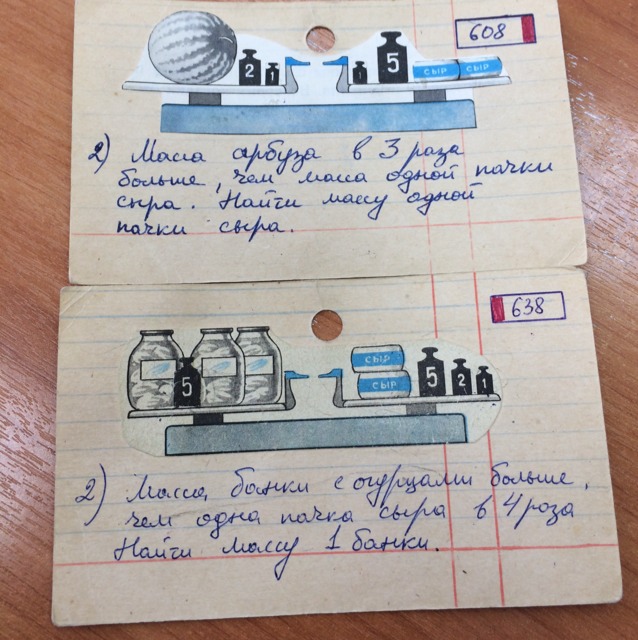 608
2 1
1 5 СЫР СЫР
2) Масса арбуза в 3 раза
больше, чем масса одной пачки
сыра. Найти массу одной
пачки сыра.
638
5
СЫР
СЫР
5 2 1
2) Масса банки с огурцами больше,
чем одна пачка сыра в 4 роза
Найти массу 1 банки.